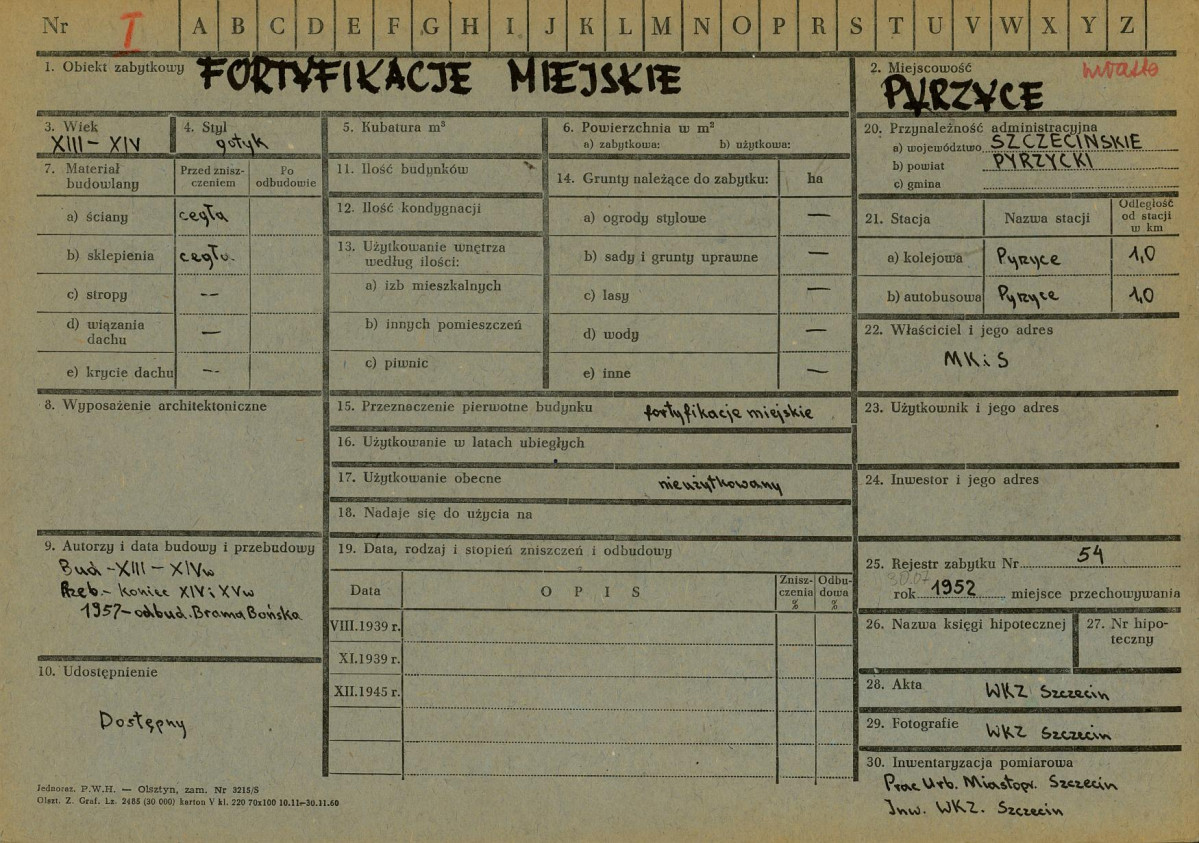 Nr I A B C D E F G H I J K L M N O P R S T U V W X Y Z
1. Obiekt zabytkowy FORTYFIKACJE MIEJSKIE
2. Miejscowość miasto
PYRZYCE
3. Wiek
XIII – XIV
4. Styl
gotyk
5. Kubatura m³
6. Powierzchnia w m²
a) zabytkowa: b) użytkowa:
20. Przynależność administracyjna
a) województwo SZCZECIŃSKIE
b) powiat PYRZYCKI
c) gmina
7. Materiał
budowlany
Przed znisz-
czeniem
Po
odbudowie
a) ściany cegła
b) sklepienia cegła
c) stropy —
d) wiązania
dachu —
e) krycie dachu —
11. Ilość budynków
12. Ilość kondygnacji
13. Użytkowanie wnętrza
według ilości:
a) izb mieszkalnych
b) innych pomieszczeń
c) piwnic
14. Grunty należące do zabytku: ha
a) ogrody stylowe —
b) sady i grunty uprawne —
c) lasy —
d) wody —
e) inne —
21. Stacja Nazwa stacji
Odległość
od stacji
w km
a) kolejowa Pyrzyce 1,0
b) autobusowa Pyrzyce 1,0
22. Właściciel i jego adres
MKiS
8. Wyposażenie architektoniczne
15. Przeznaczenie pierwotne budynku fortyfikacje miejskie
16. Użytkowanie w latach ubiegłych
17. Użytkowanie obecne nieużytkowany
18. Nadaje się do użycia na
23. Użytkownik i jego adres
24. Inwestor i jego adres
9. Autorzy i data budowy i przebudowy
Bud – XIII – XIVw
Przeb. – koniec XIV i XVw
1957 – odbud. Brama Bańska
19. Data, rodzaj i stopień zniszczeń i odbudowy
Data O P I S
Znisz-
czenia
%
Odbu-
dowa
%
VIII.1939 r.
XI.1939 r.
XII.1945 r.
25. Rejestr zabytku Nr 54
30.07
rok 1952 miejsce przechowywania
26. Nazwa księgi hipotecznej
27. Nr hipo-
teczny
10. Udostępnienie
Dostępny
28. Akta WKZ Szczecin
29. Fotografie WKZ Szczecin
30. Inwentaryzacja pomiarowa
Prac Urb. Miastopr. Szczecin
Inw. WKZ. Szczecin
Jednoraz. P.W.H. — Olsztyn, zam. Nr 3215/S
Olszt. Z. Graf. Lz. 2485 (30 000) karton V kl. 220 70x100 10.11–30.11.60